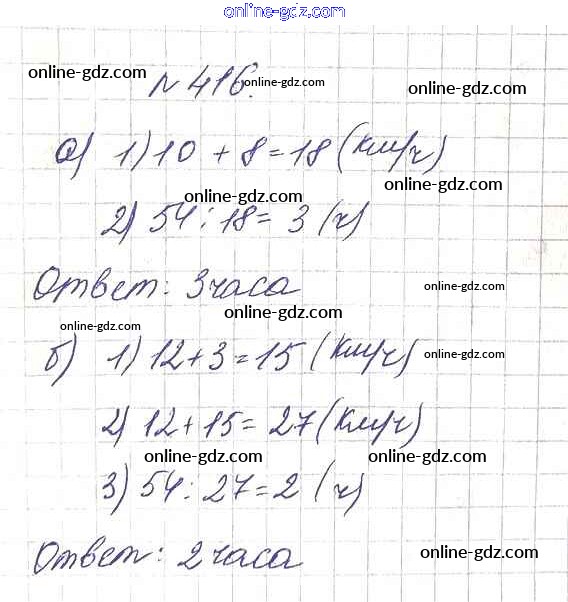 online-gdz.com
online-gdz.com
№ 416.
online-gdz.com
online-gdz.com
а) 1) 10 + 8 = 18 (км/ч)
online-gdz.com
online-gdz.com
2) 54 : 18 = 3 (ч)
Ответ: 3 часа
online-gdz.com
online-gdz.com
online-gdz.com
б) 1) 12 + 3 = 15 (км/ч)
online-gdz.com
2) 12 + 15 = 27 (км/ч)
online-gdz.com
online-gdz.com
3) 54 : 27 = 2 (ч)
Ответ: 2 часа
online-gdz.com
online-gdz.com